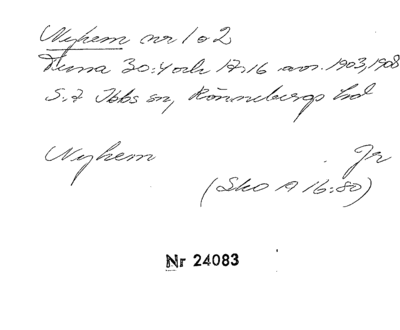 Nyhem nr 1 o 2
Runa 30:4 och 17:16 avs. 1903, 1908
S:t Ibbs sn, Rönnebergs hd
Nyhem Jr
(Sko A 16:80)
Nr 24083